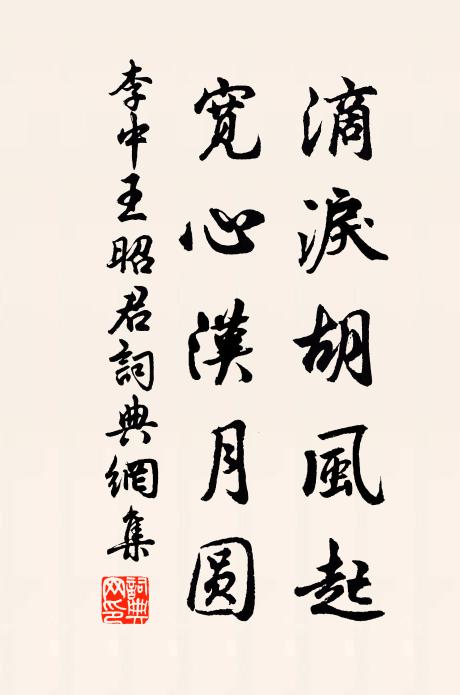 滴淚胡風起
寬心漢月圓
李中王昭君詞典網集
詞典網印